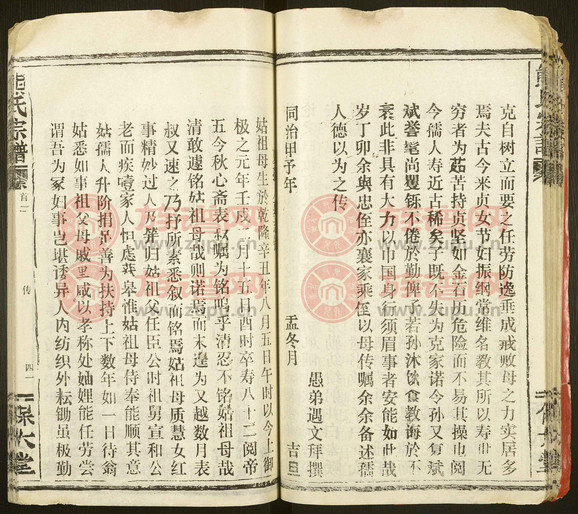 克自树立而要之任劳防逸垂成戒败母之力实居多
焉夫古今来贞女节妇振纲常维名教其所以寿世无
穷者为茹苦持贞坚如金石历危险而不易其操巾阅
今孺人寿近古稀矣子既不失为克家诺令孙又复斌
斌誉髦尚矍铄不倦於勤俾若孙沐饮食教诲於不
衰此非具有大力以巾国身行须眉事者安能如此哉
岁丁卯余与忠侄亦襄家乘至以母传嘱余余备述孺
人德以为之传
愚弟遇文拜撰
同治甲子年 孟冬月 吉旦
姑祖母生於乾隆辛丑年八月五日午时以今上御
极之元年壬戌 月十五日酉时卒寿八十二阅帝
五今秋心斋表叔嘱予铭呜乎清忍不铭姑祖母哉
清敢遽铭姑祖母哉则诺焉而未遑为又越数月表
叔又速之乃抒所素悉叙而铭焉姑祖母质慧女红
事精妙过人 笄归姑祖父任臣公时祖舅宣和公
老而疾 家人怕虑 惟姑祖母侍奉能顺其意
姑孺人升阶捐 善为扶持上下数年如一日待翁
姑悉如事祖父母戚里咸以孝称处妯娌能任劳尝
谓吾为冢妇事岂堪诱异人内纺织外耘锄虽极勤
熊氏宗谱
卷首
传
四一
保大堂